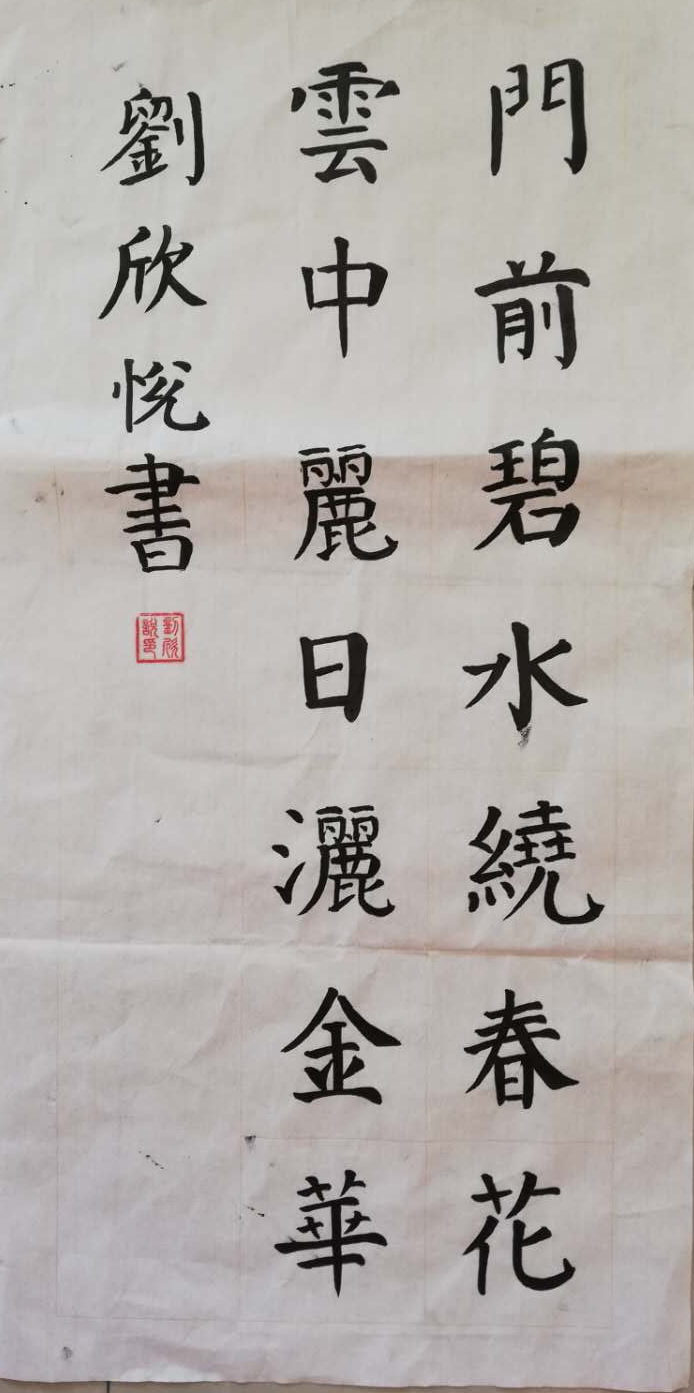 門前碧水繞春花
雲中麗日灑金華
劉欣悅書